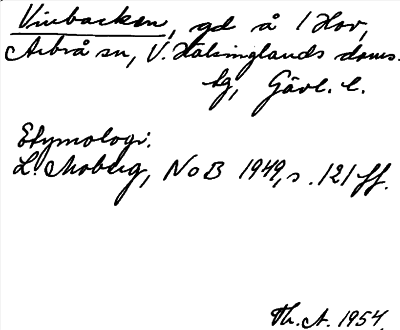 Vivbacken, gd å 1 Hov,
Arbrå sn, V. Hälsinglands doms.
tg, Gävl. l.
Etymologi.
L. Moberg, NoB 1949, s. 121 ff.
Th. A. 1954